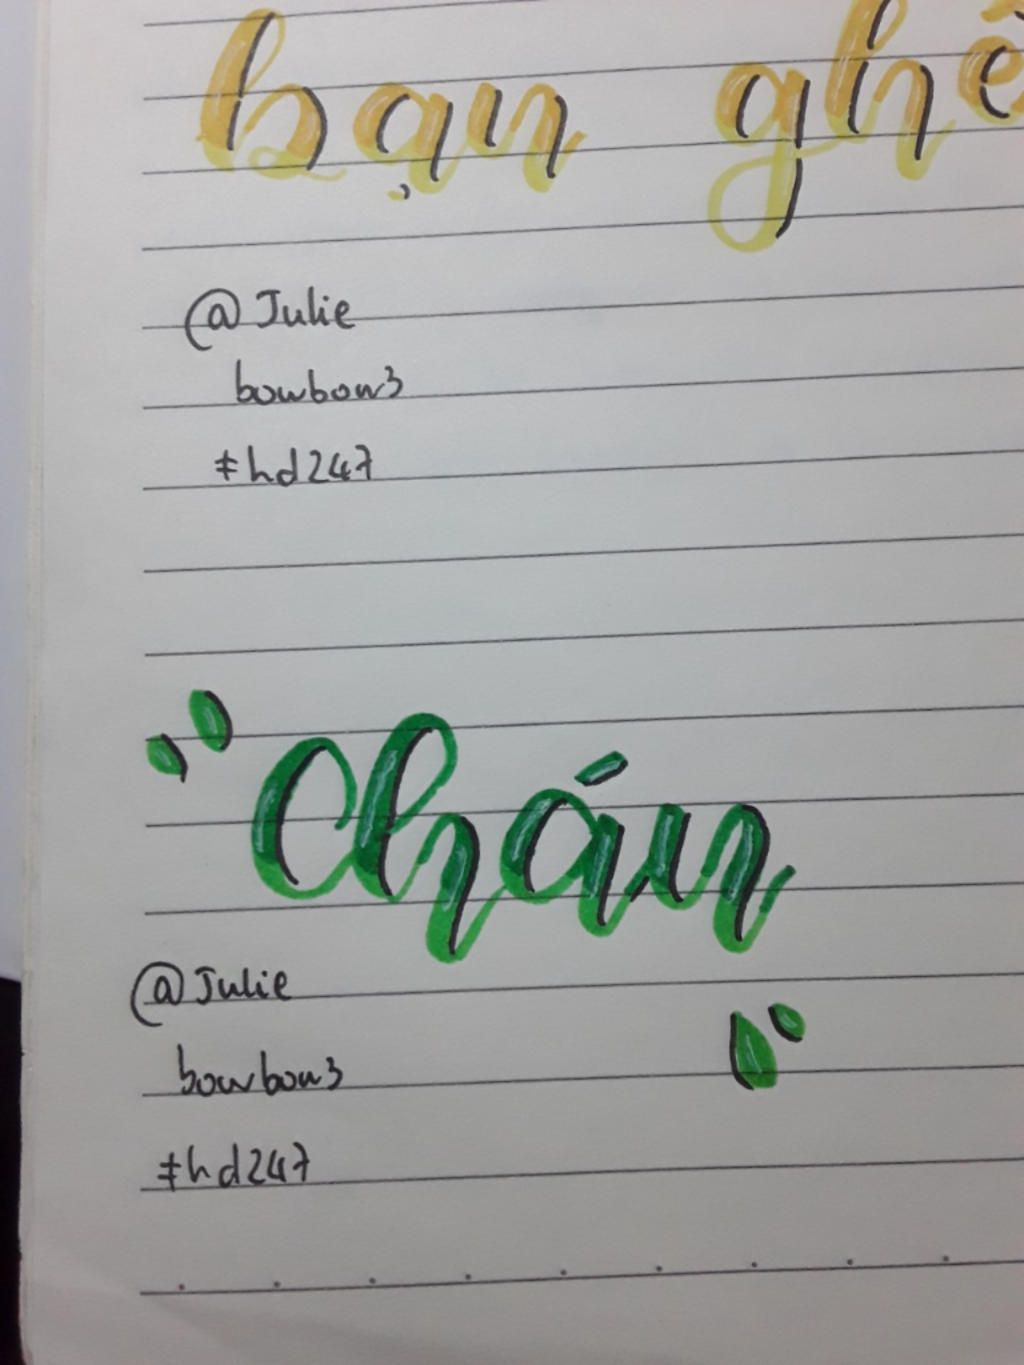 bạn ghê
@Julie
bowbow3
#hd247
"Chán"
@Julie
bowbow3
#hd247